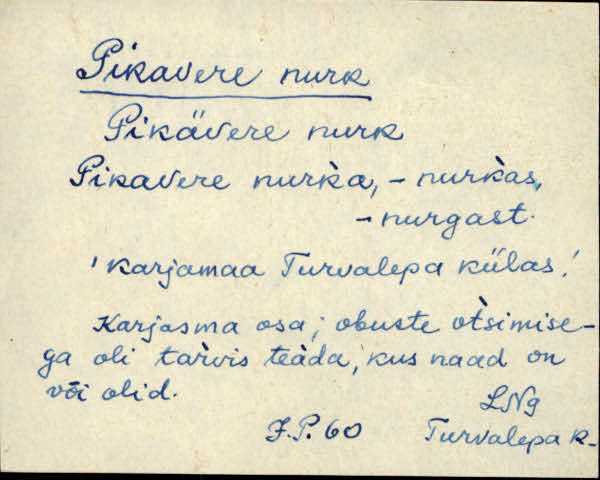 Pikavere nurk
Pikävere nurk
Pikavere nurk̀a, - nurk̀as,
- nurgast.
'karjamaa Turvalepa külas!
Karjasma osa; obuste ot̀simise-
ga oli tar̀vis teàda, kus naad on
või olid.
LNg
J.P. 60 Turvalepa k-